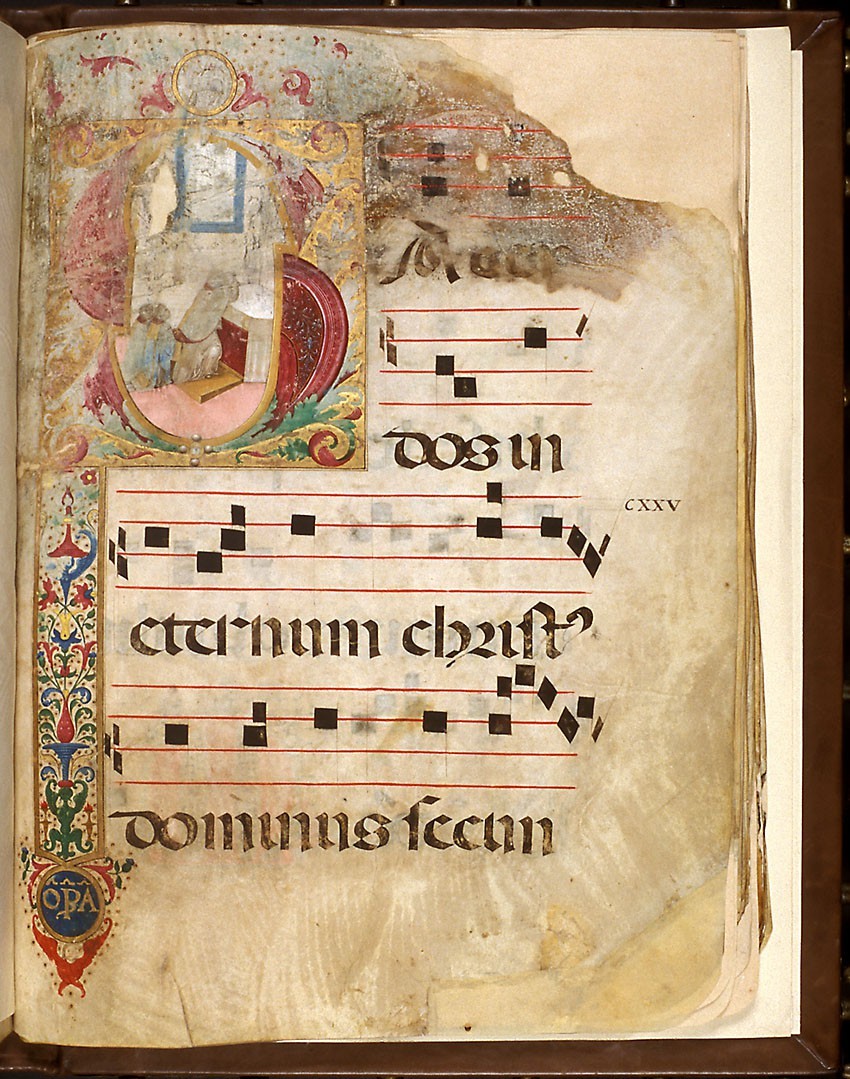 dos in
CXXV
eternum christꝰ
dominus secun
OPA